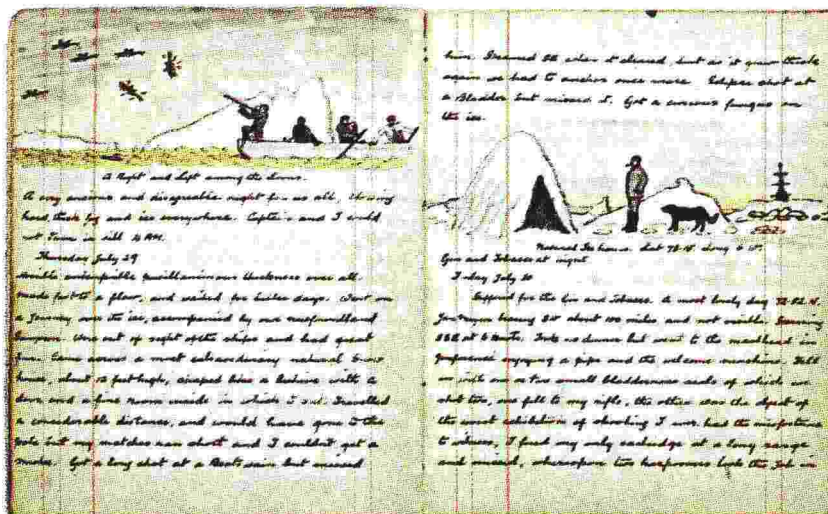 A Right and Left among the Looms.
A very anxious and disagreeable night for us all, blowing
hard, thick fog and ice everywhere. Captain and I did
not Turn in till 4 AM.
Thursday July 29
Horrible unbearable thickness over all
made fast to a floe, and waited for better days. Went on
a Journey over the ice, accompanied by our newfoundland
Sampson. Were out of sight of the ships and had great
fun. Came across a most extraordinary natural Snow
house, about 12 feet high, shaped like a beehive with a
door and a fine room inside in which I sat. Travelled
a considerable distance, and would have gone to the
Pole but my matches ran short and I couldn't get a
smoke. Got a long shot at a Boatswain but missed
him. Steamed SE when it cleared, but as it grew thick
again we had to anchor once more. Eclipse shot at
a Bladder but missed it. Got a curious fungus on
the ice.
Natural Ice house. Lat 72.
Gin and Tobacco at night
Friday July 30
Suffered for the Gin and Tobacco. A most lovely day 72.52 N.
Jan Mayen bearing SW about 100 miles and not visible. Steaming
SSE at 6 knots. Took no dinner but went to the masthead in
preference enjoying a pipe and the welcome sunshine. Fell
in with one or two small bladdernose seals of which we
shot two, one fell to my rifle, the other was the object of
the worst exhibition of shooting I ever had the misfortune
to witness. I fired my only cartridge at a long range
and missed, whereupon two harpooners took the job in